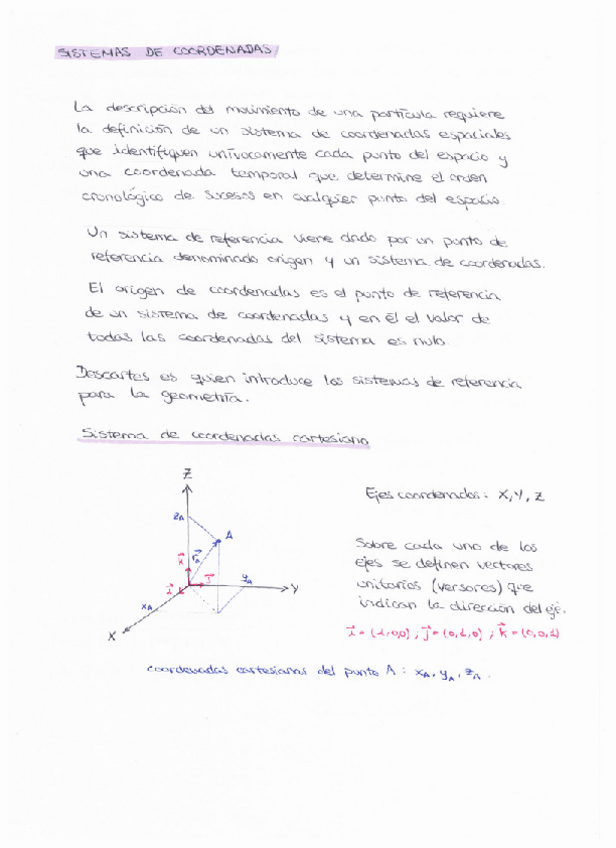 SISTEMAS DE COORDENADAS
La descripción del movimiento de una partícula requiere
la definición de un sistema de coordenadas espaciales
que identifiquen unívocamente cada punto del espacio y
una coordenada temporal que determine el orden
cronológico de sucesos en cualquier punto del espacio.
Un sistema de referencia viene dado por un punto de
referencia denominado origen y un sistema de coordenadas.
El origen de coordenadas es el punto de referencia
de un sistema de coordenadas y en él el valor de
todas las coordenadas del sistema es nulo.
Descartes es quien introduce los sistemas de referencia
para la geometría.
Sistema de coordenadas cartesiano
Z
Ejes coordenados: X, Y, Z
z_A
A
Sobre cada uno de los
ejes se definen vectores
unitarios (versores) que
indican la dirección del eje.
k⃗
r⃗_A
i⃗
j⃗
y_A
Y
x_A
X
i⃗ = (1,0,0) ; j⃗ = (0,1,0) ; k⃗ = (0,0,1)
coordenadas cartesianas del punto A : x_A, y_A, z_A.